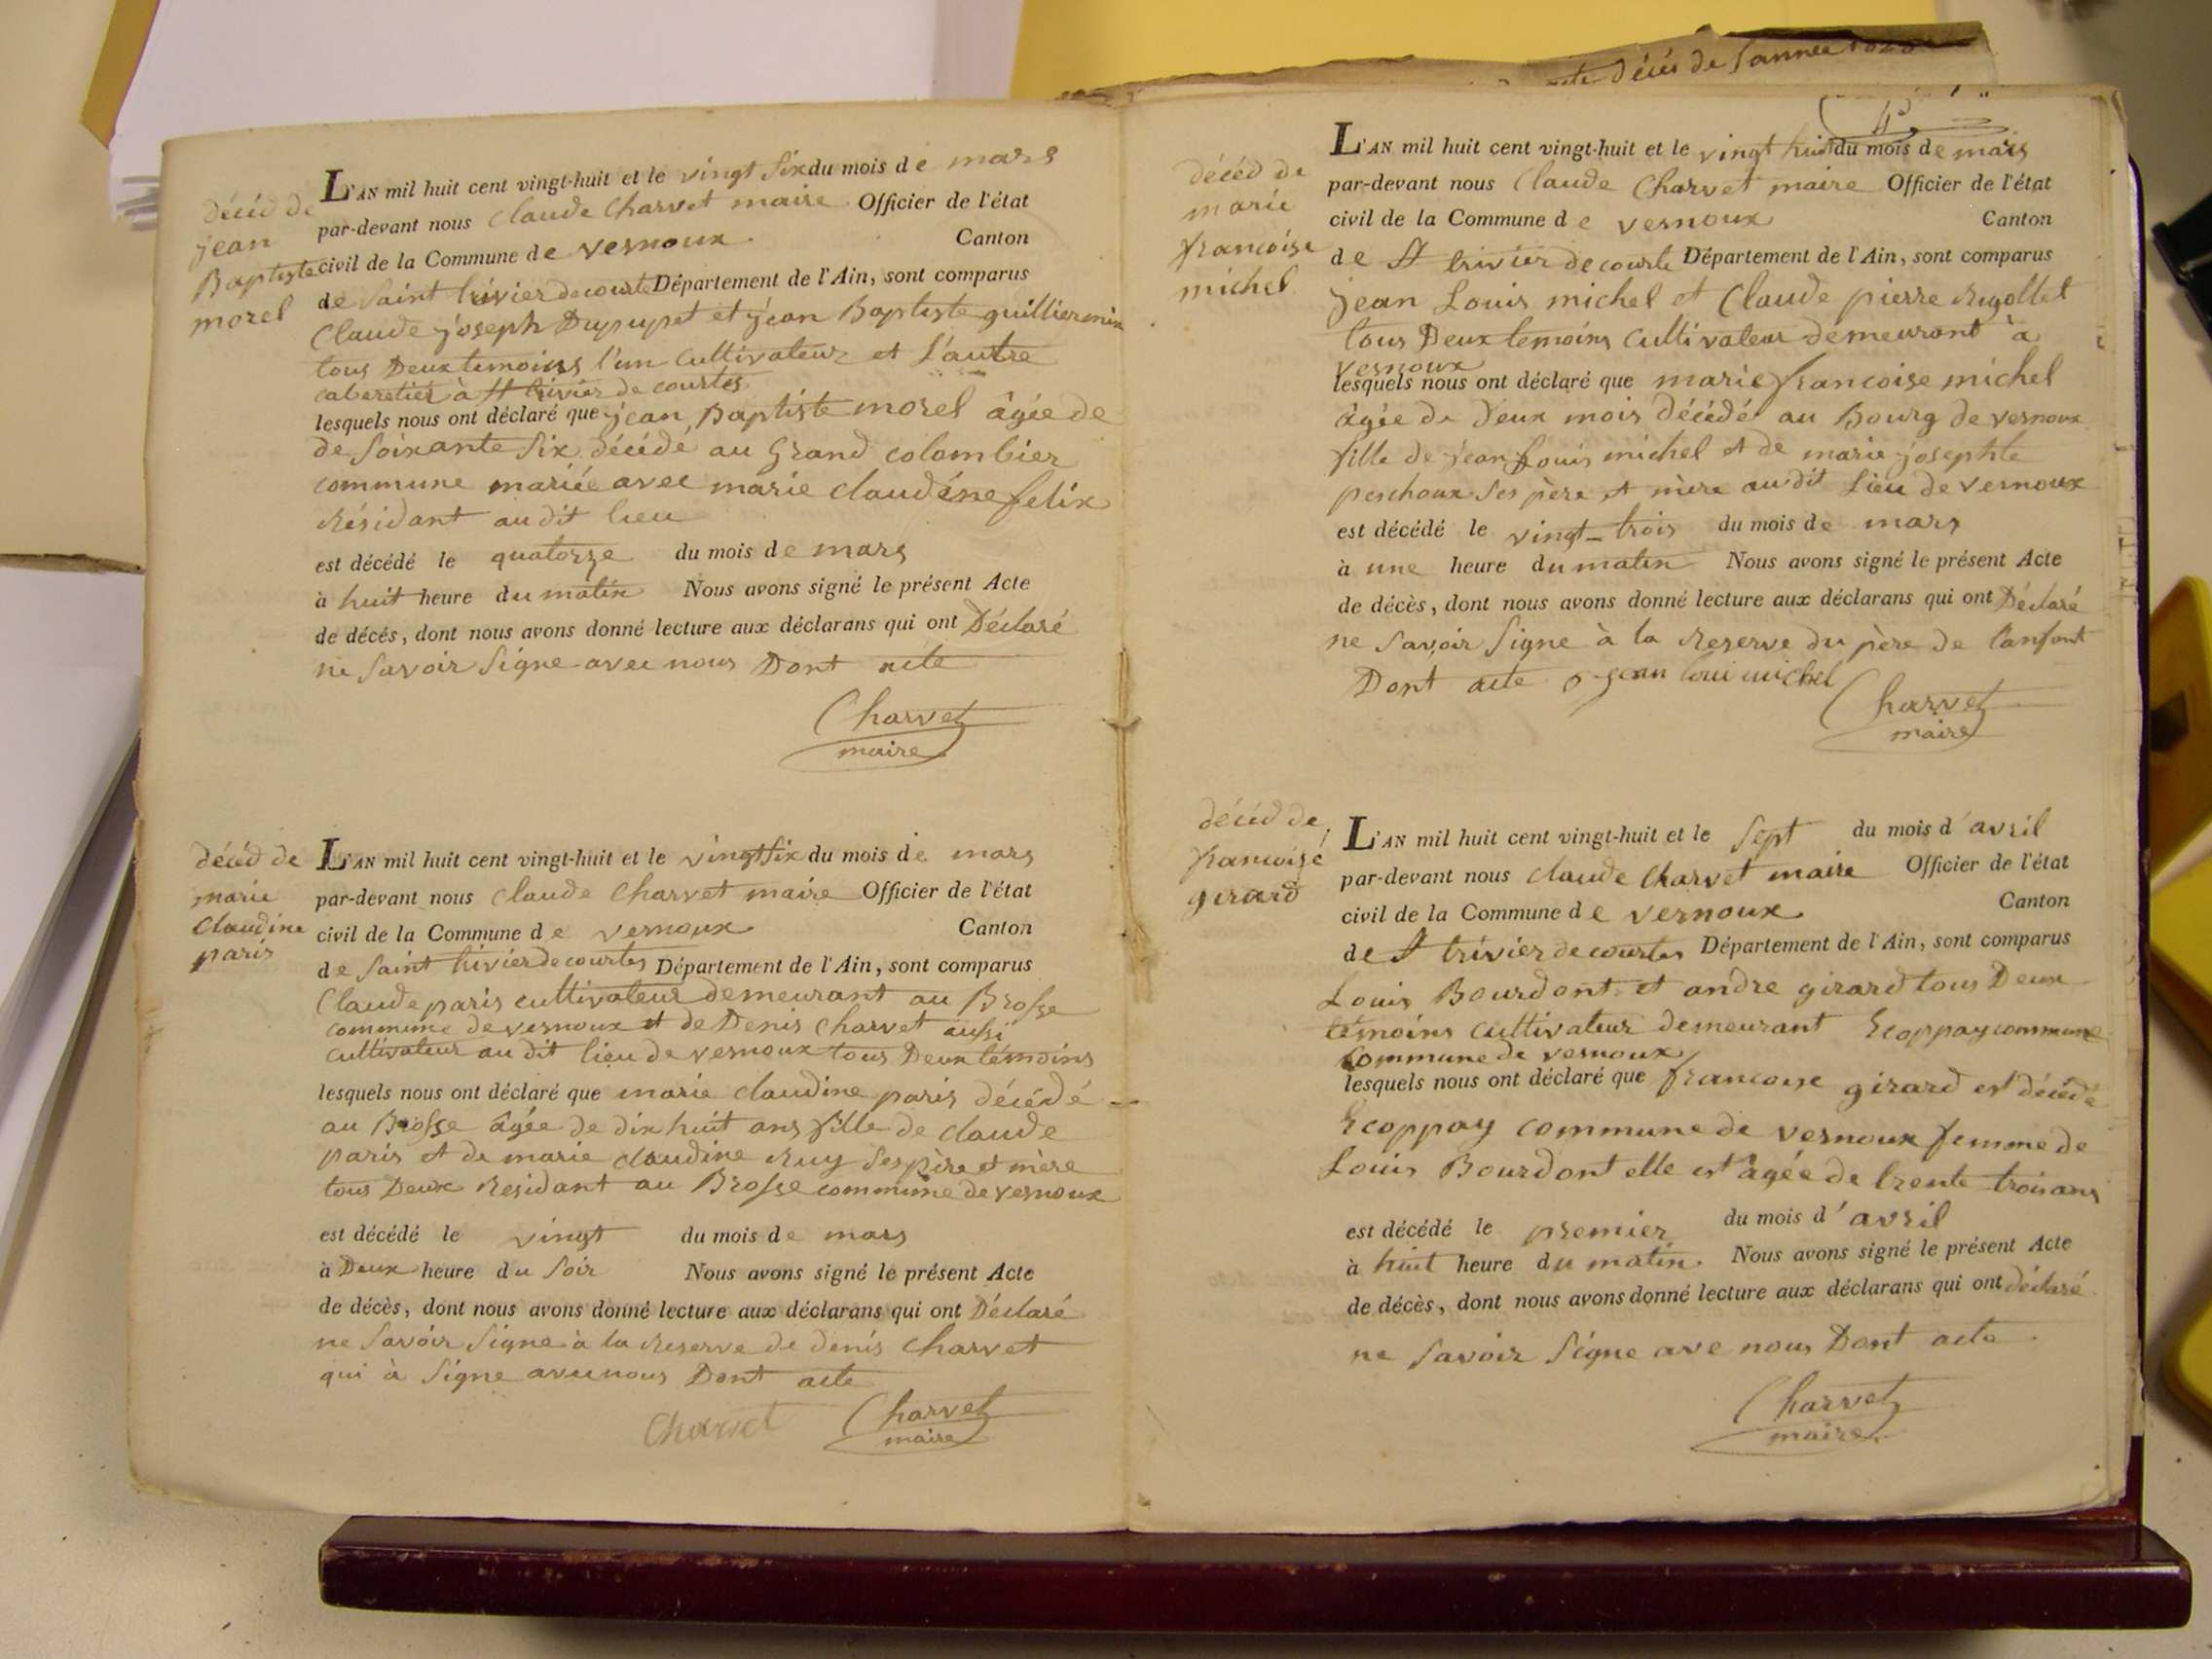 décéd de
jean
Baptiste
morel
L'AN mil huit cent vingt-huit et le vingt six du mois de mars
par-devant nous Claude Charvet maire Officier de l'état
civil de la Commune de vernoux Canton
de Saint trivier de courte Département de l'Ain, sont comparus
Claude joseph Dupupet et jean Baptiste guilliermin
tous Deux temoins l'un Cultivateur et l'autre
caberetier à St trivier de courtes
lesquels nous ont déclaré que jean Baptiste morel âgée de
de soixante six décéde au Grand colombier
commune mariée avec marie claudéne felix
Résidant au dit lieu
est décédé le quatorze du mois de mars
à huit heure du matin Nous avons signé le présent Acte
de décés, dont nous avons donné lecture aux déclarans qui ont Déclaré
ne Savoir Signe avec nous Dont acte
Charvet
maire
décéd de
marie
Claudine
paris
L'AN mil huit cent vingt-huit et le vingt six du mois de mars
par-devant nous Claude Charvet maire Officier de l'état
civil de la Commune de vernoux Canton
de Saint trivier de courtes Département de l'Ain, sont comparus
Claude paris cultivateur demeurant au Brosse
commune de vernoux et de Denis Charvet aussi
cultivateur au dit lieu de vernoux tous Deux témoins
lesquels nous ont déclaré que marie claudine paris décédé
au Brosse âgée de dix huit ans fille de claude
paris et de marie claudine Ruy Ses père et mère
tous Deux Residant au Brosse commune de vernoux
est décédé le vingt du mois de mars
à Deux heure du Soir Nous avons signé le présent Acte
de décès, dont nous avons donné lecture aux déclarans qui ont Déclaré
ne Savoir Signe à la Reserve de denis Charvet
qui à Signe avec nous Dont acte
Charvet Charvet
maire
décés de l'année
décéd de
marie
francoise
michel
L'AN mil huit cent vingt-huit et le vingt huit du mois de mars
par-devant nous Claude Charvet maire Officier de l'état
civil de la Commune de vernoux Canton
de St trivier de courte Département de l'Ain, sont comparus
jean Louis michel et Claude pierre Rigollet
tous Deux temoins Cultivateur demeurant à
vernoux
lesquels nous ont déclaré que marie francoise michel
âgée de deux mois décédé au Bourg de vernoux
fille de jean Louis michel et de marie josephte
perchoux Ses père et mère au dit Lieu de vernoux
est décédé le vingt-trois du mois de mars
à une heure du matin Nous avons signé le présent Acte
de décès, dont nous avons donné lecture aux déclarans qui ont Déclaré
ne Savoir Signe à la Reserve du père de l'anfant
Dont acte jean loui michel
Charvet
maire
décéd de
francoise
girard
L'AN mil huit cent vingt-huit et le Sept du mois d'avril
par-devant nous claude Charvet maire Officier de l'état
civil de la Commune de vernoux Canton
de St trivier de courtes Département de l'Ain, sont comparus
Louis Bourdont et andre girard tous Deux
témoins cultivateur demeurant Ecoppay commune
Commune de vernoux
lesquels nous ont déclaré que francoise girard est décédé
Ecoppay commune de vernoux femme de
Louis Bourdont elle est âgée de trente trois ans
est décédé le premier du mois d'avril
à huit heure du matin Nous avons signé le présent Acte
de décès, dont nous avons donné lecture aux déclarans qui ont déclaré
ne Savoir Signe ave nous Dont acte
Charvet
maire